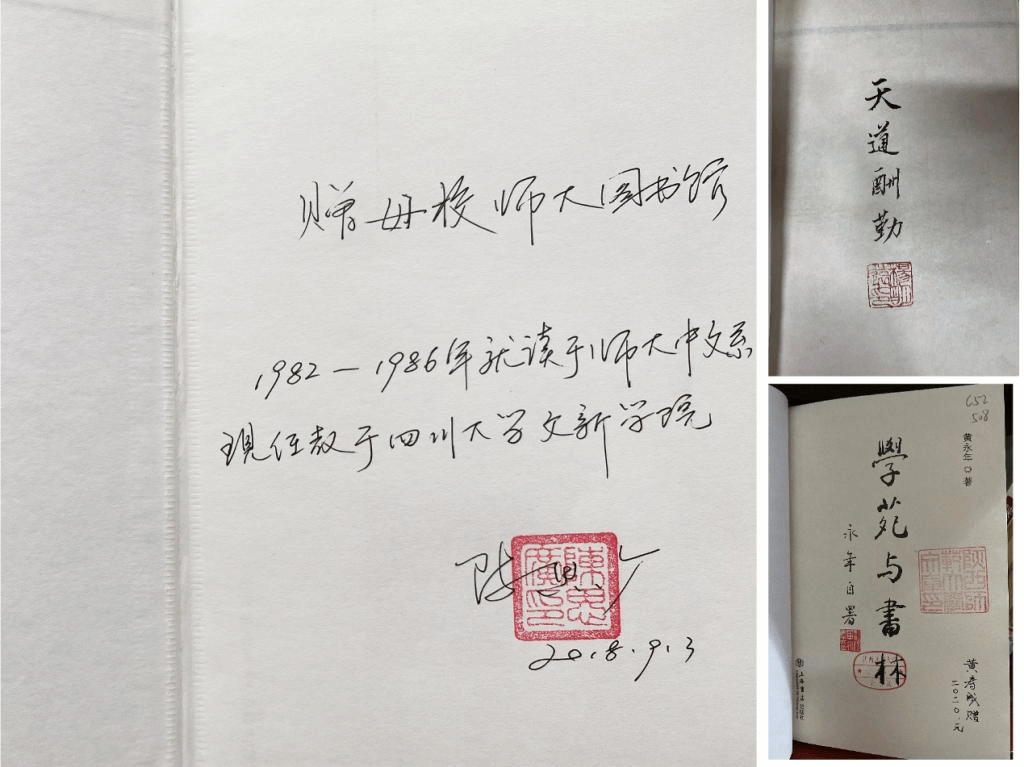 赠母校师大图书馆
1982—1986年就读于师大中文系
现任教于四川大学文新学院
陈思广
2018.9.3
陳思廣印
天道酬勤
652
508
黄永年◎著
學苑与書林
永年自署
上海書店出版社
黄寿成赠
二〇二〇.元